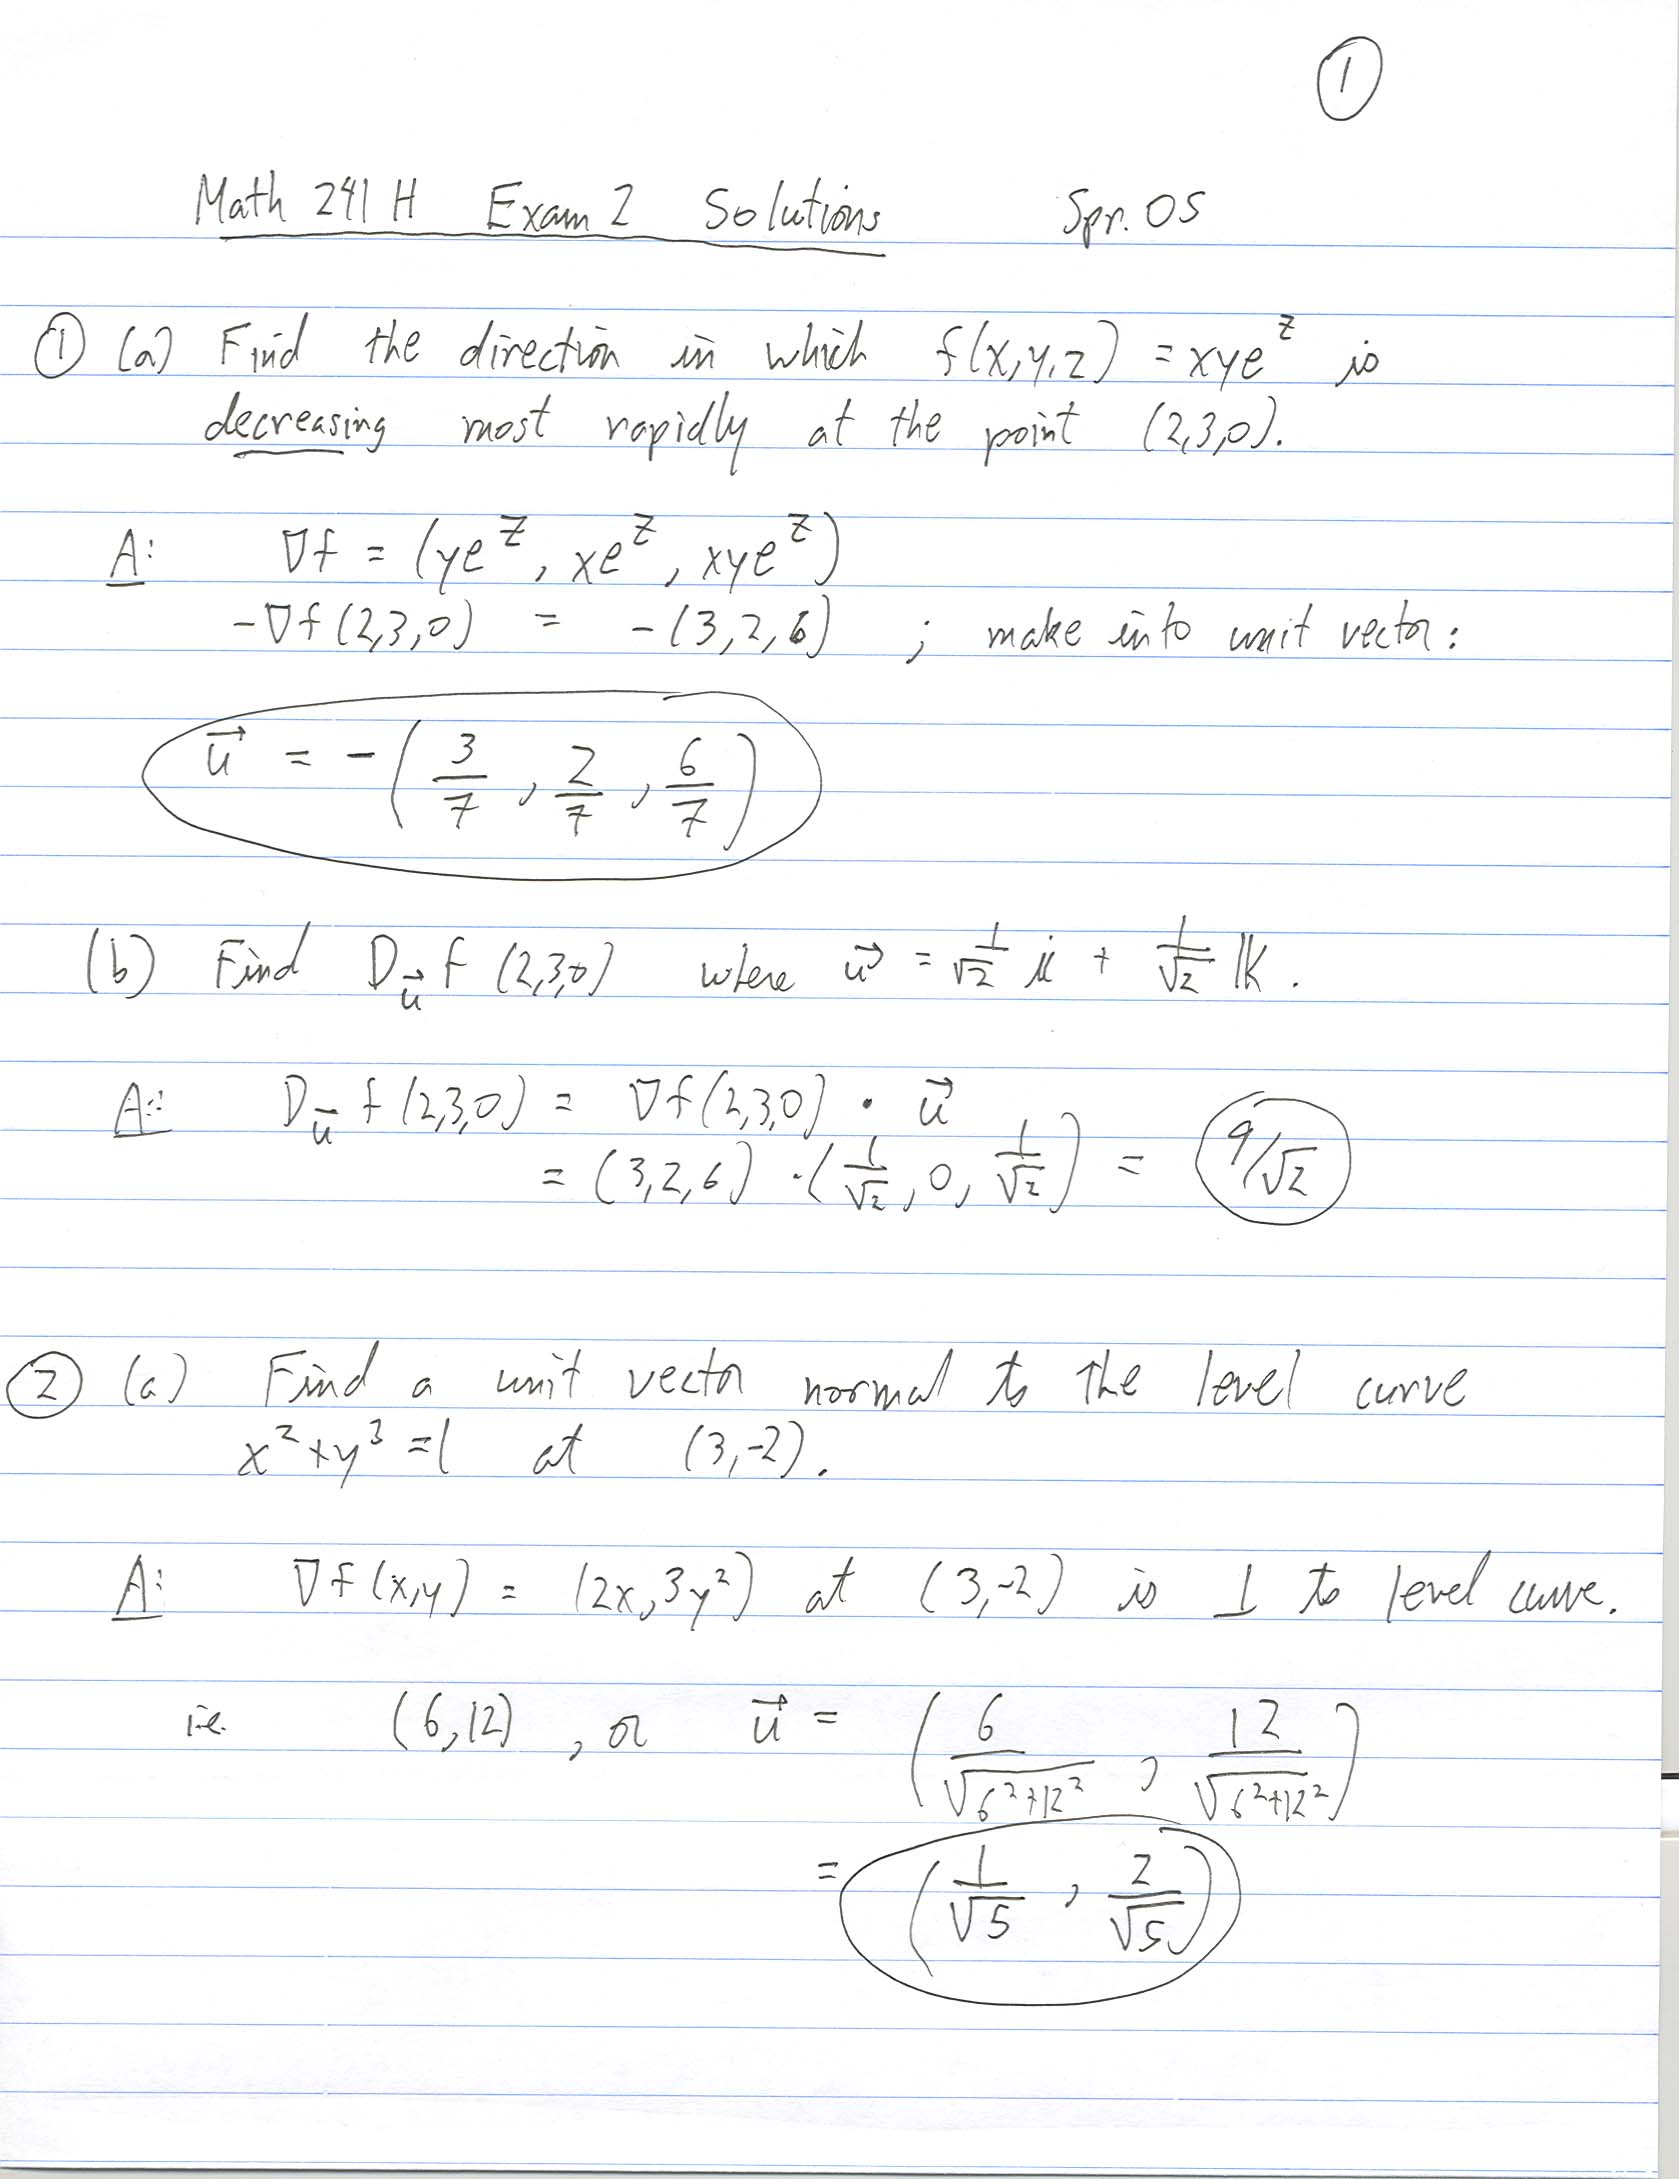 1
Math 241 H Exam 2 Solutions Spr. 05
1 (a) Find the direction in which f(x,y,z) = xye^z is
decreasing most rapidly at the point (2,3,0).
A: ∇f = (ye^z, xe^z, xye^z)
-∇f(2,3,0) = -(3,2,6) ; make into unit vector:
u⃗ = -(3/7, 2/7, 6/7)
(b) Find D_u⃗ f (2,3,0) where u⃗ = 1/√2 i + 1/√2 k.
A: D_u⃗ f(2,3,0) = ∇f(2,3,0) · u⃗
= (3,2,6) · (1/√2, 0, 1/√2) = 9/√2
2 (a) Find a unit vector normal to the level curve
x²+y³=1 at (3,-2).
A: ∇f(x,y) = (2x,3y²) at (3,-2) is ⊥ to level curve.
i.e. (6,12), or u⃗ = (6/√(6²+12²), 12/√(6²+12²))
= (1/√5, 2/√5)